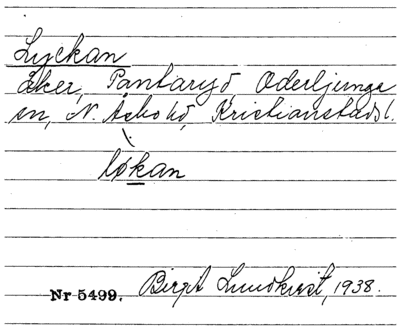 Lyckan
Åker, Pantaryd, Oderljunga
sn, N. Åsbo hd, Kristianstads l.
løkan
Nr 5499. Birgit Lundkvist, 1938.